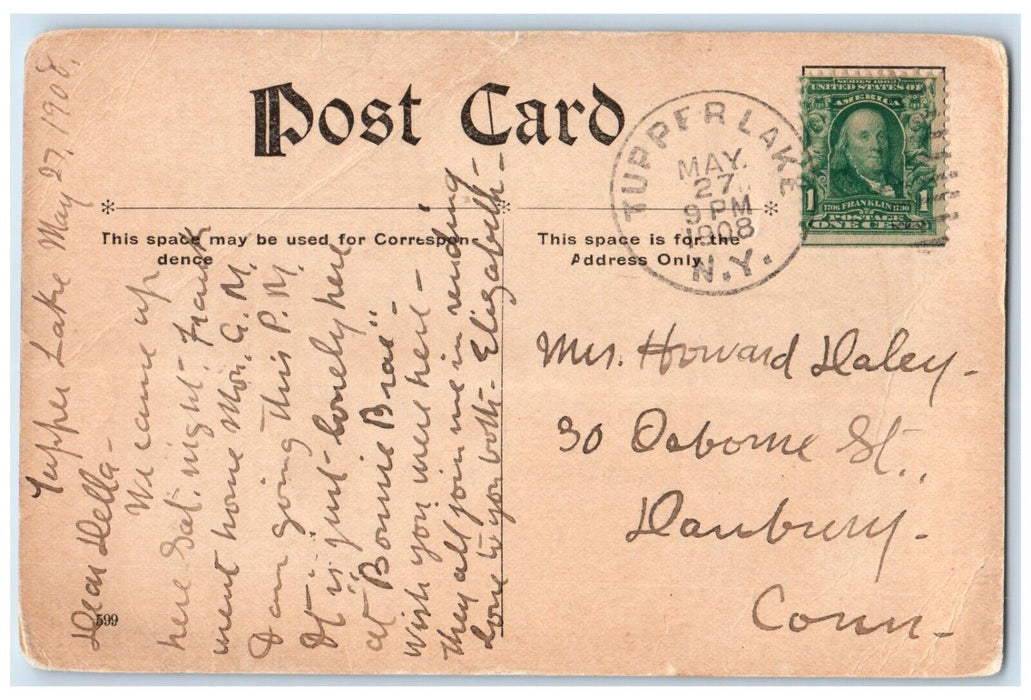 Post Card
This space may be used for Correspon-
dence
This space is for the
Address Only
TUPPER LAKE
MAY.
27
9 PM
1908
N.Y.
SERIES 1902
UNITED STATES OF
AMERICA
1 1
1706 FRANKLIN 1790
POSTAGE
ONE CENT
Tupper Lake May 27, 1908.
Dear Della-
We came up
here Sat. night- Frank
went home Mon. A. M.
I am going this P. M.
It is just lonely here
at Bonnie Brae"-
wish you were here-
They all join me in sending
love to you both- Elizabeth-
Mrs. Howard Daley-
30 Osborne St.,
Danbury-
Conn-
599